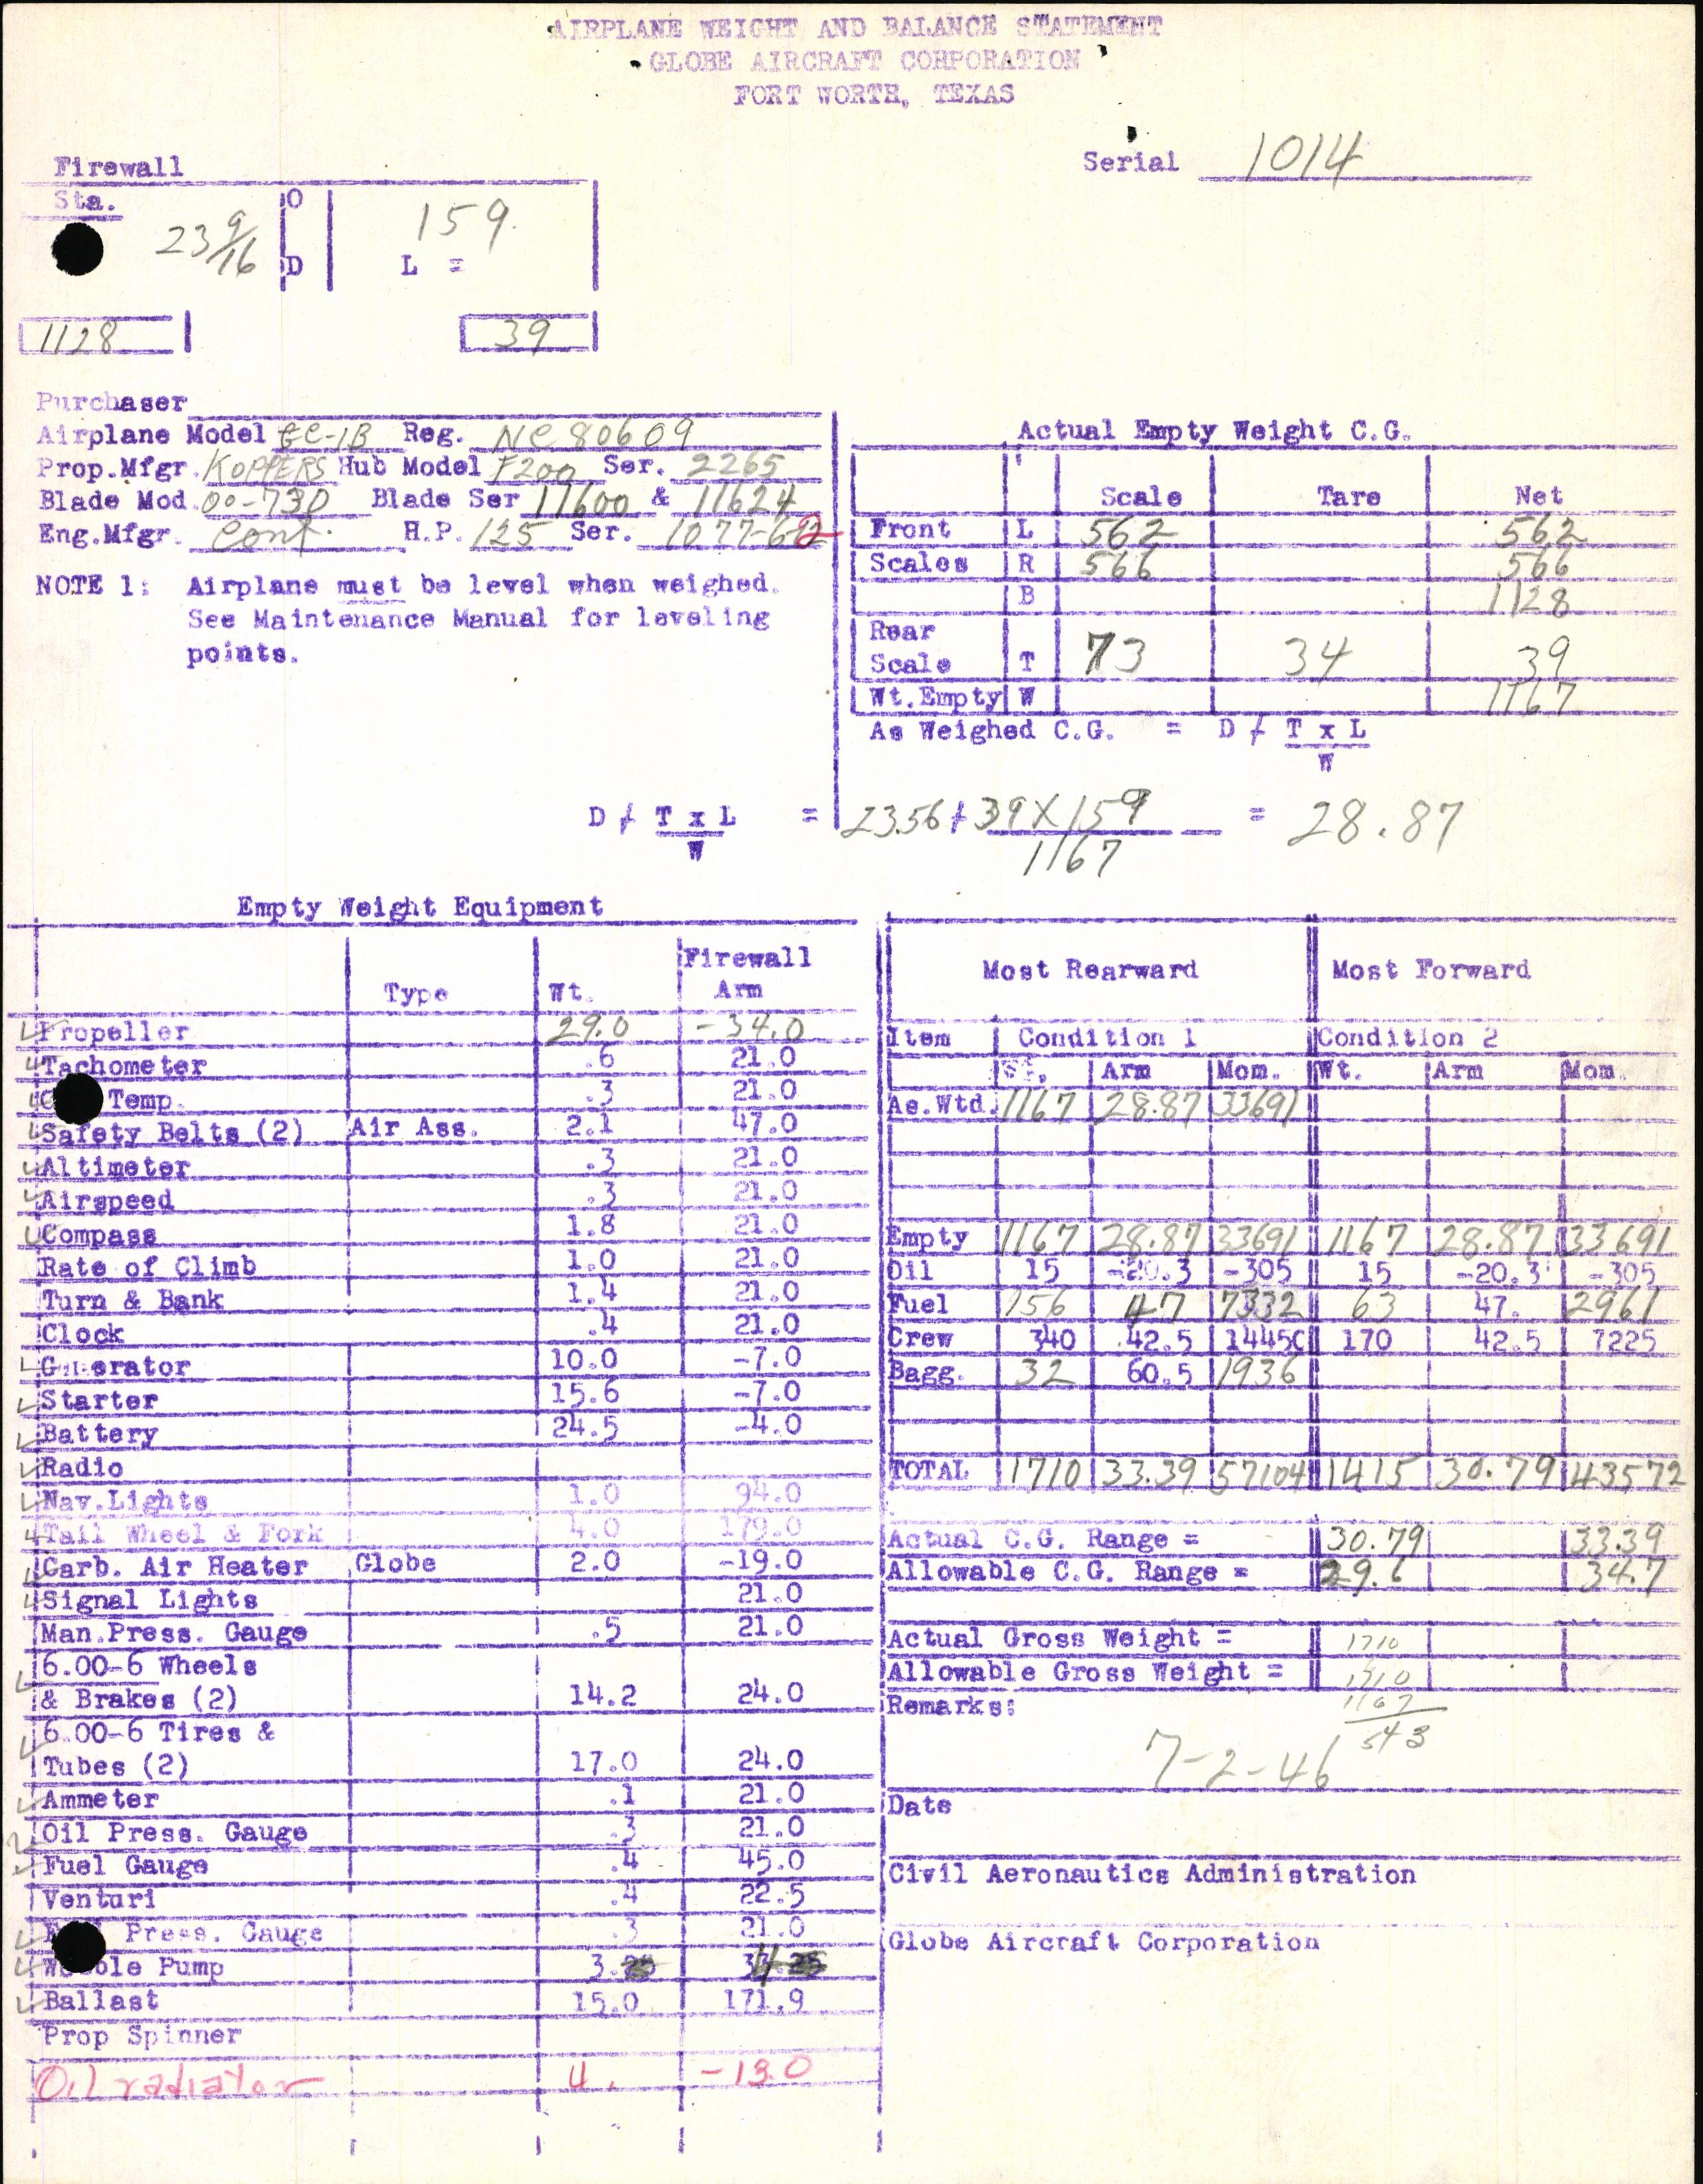 AIRPLANE WEIGHT AND BALANCE STATEMENT
GLOBE AIRCRAFT CORPORATION
FORT WORTH, TEXAS
Serial 1014
Firewall
Sta.
23 9/16
O
D
159.
L =
1128
39
Purchaser
Airplane Model GC-1B Reg. NC80609
Prop.Mfgr. KOPPERS Hub Model F200 Ser. 2265
Blade Mod. 00-73D Blade Ser 11600 & 11624
Eng.Mfgr. Cont. H.P. 125 Ser. 1077-6-2
NOTE 1: Airplane must be level when weighed.
See Maintenance Manual for leveling
points.
Actual Empty Weight C.G.
Scale Tare Net
Front L 562 562
Scales R 566 566
B 1128
Rear
Scale T 73 34 39
Wt.Empty W 1167
As Weighed C.G. = D / T x L
W
D / T x L = 23.56 + 39 X 159 = 28.87
W 1167
Empty Weight Equipment
Type Wt. Firewall Arm
Propeller 29.0 -34.0
Tachometer .6 21.0
Temp. .3 21.0
Safety Belts (2) Air Ass. 2.1 47.0
Altimeter .3 21.0
Airspeed .3 21.0
Compass 1.8 21.0
Rate of Climb 1.0 21.0
Turn & Bank 1.4 21.0
Clock .4 21.0
Generator 10.0 -7.0
Starter 15.6 -7.0
Battery 24.5 -4.0
Radio
Nav.Lights 1.0 94.0
Tail Wheel & Fork 4.0 179.0
Carb. Air Heater Globe 2.0 -19.0
Signal Lights 21.0
Man.Press. Gauge .5 21.0
6.00-6 Wheels
& Brakes (2) 14.2 24.0
6.00-6 Tires &
Tubes (2) 17.0 24.0
Ammeter .1 21.0
Oil Press. Gauge .3 21.0
Fuel Gauge .4 45.0
Venturi .4 22.5
Press. Gauge .3 21.0
Pump 3.
Ballast 15.0 171.9
Prop Spinner
Oil radiator 4. -13.0
Most Rearward Most Forward
Item Condition 1 Condition 2
Wt. Arm Mom. Wt. Arm Mom.
As.Wtd. 1167 28.87 33691
Empty 1167 28.87 33691 1167 28.87 33691
Oil 15 -20.3 -305 15 -20.3 -305
Fuel 156 47 7332 63 47. 2961
Crew 340 42.5 14450 170 42.5 7225
Bagg. 32 60.5 1936
TOTAL 1710 33.39 57104 1415 30.79 43572
Actual C.G. Range = 30.79 33.39
Allowable C.G. Range = 29.6 34.7
Actual Gross Weight = 1710
Allowable Gross Weight = 1710
Remarks: 1167
543
7-2-46
Date
Civil Aeronautics Administration
Globe Aircraft Corporation